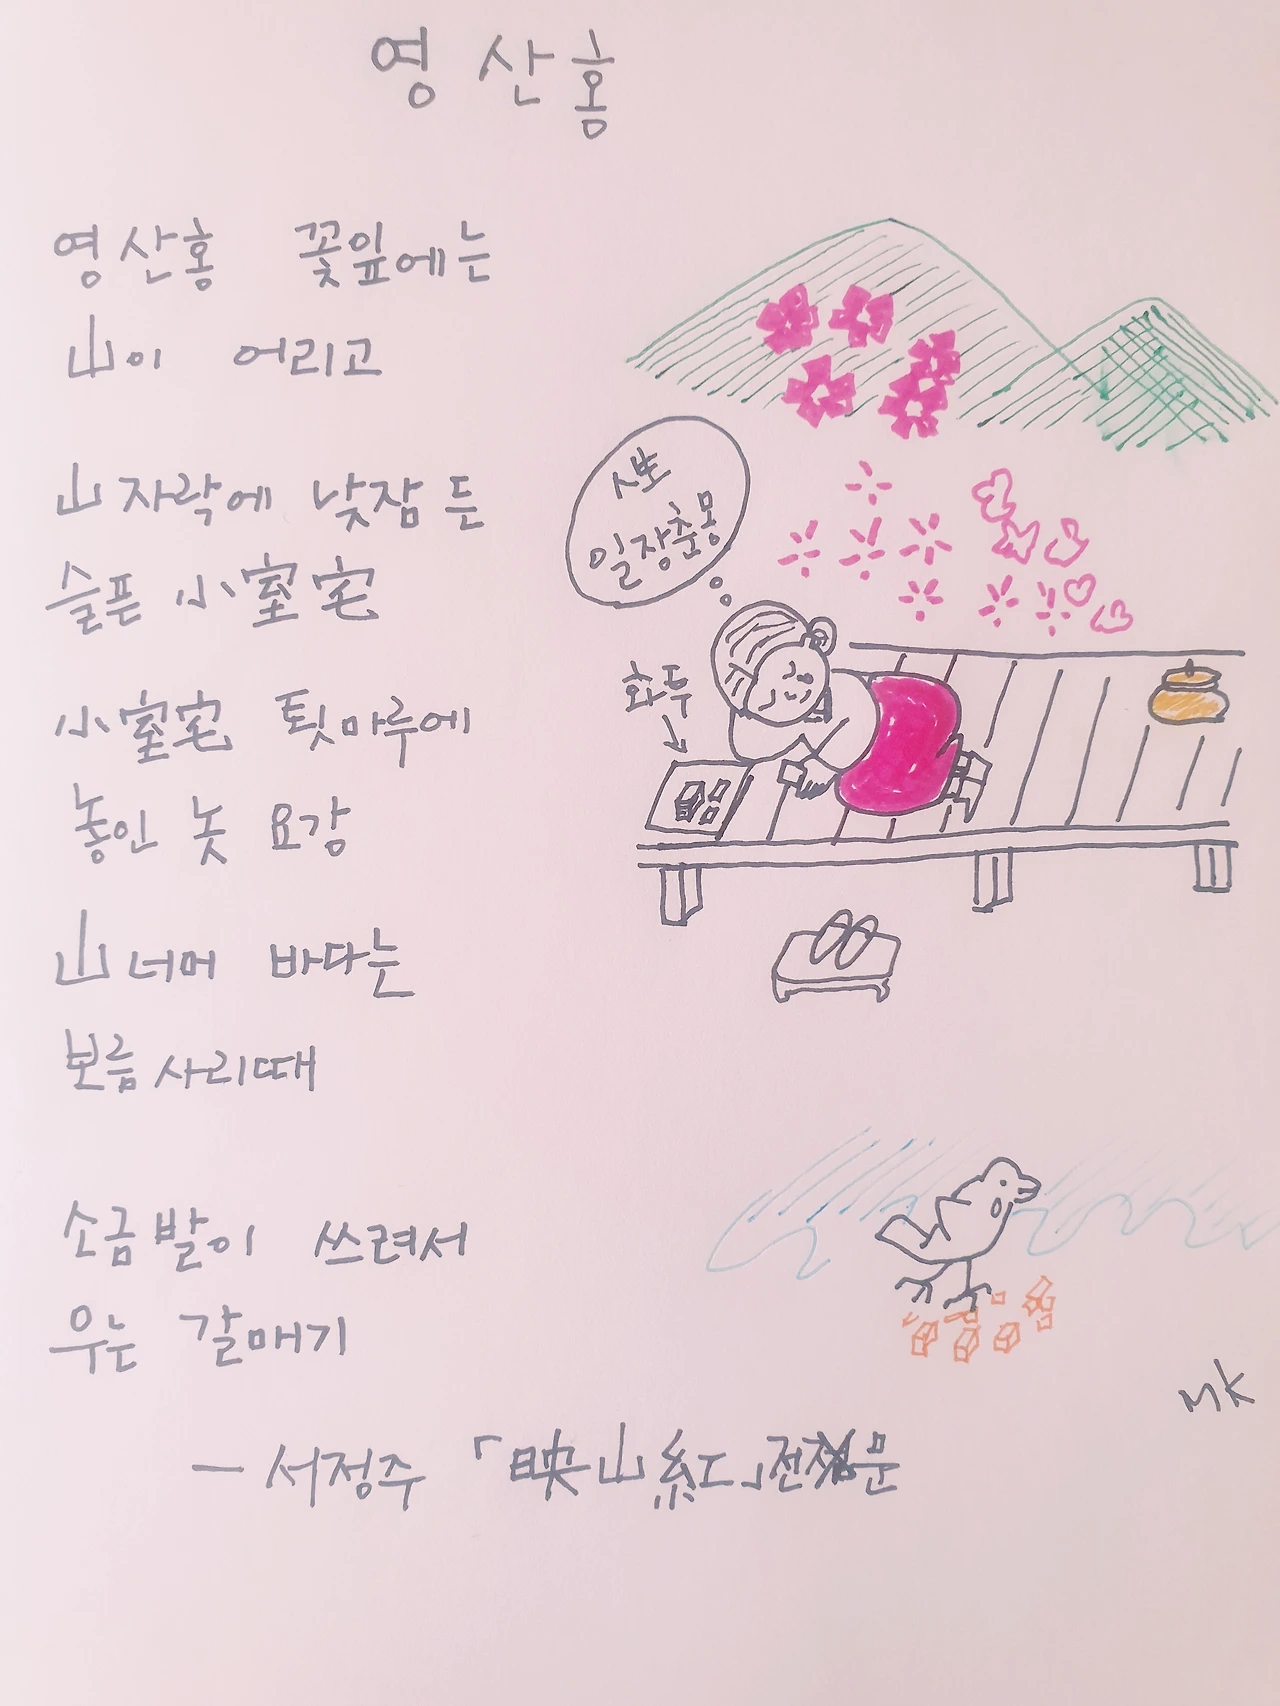 영산홍
영산홍 꽃잎에는
山이 어리고
山자락에 낮잠 든
슬픈 小室宅
小室宅 툇마루에
놓인 놋 요강
山 너머 바다는
보름 사리때
소금 발이 쓰려서
우는 갈매기
- 서정주 「映山紅」전문
일장춘몽
화투
MK